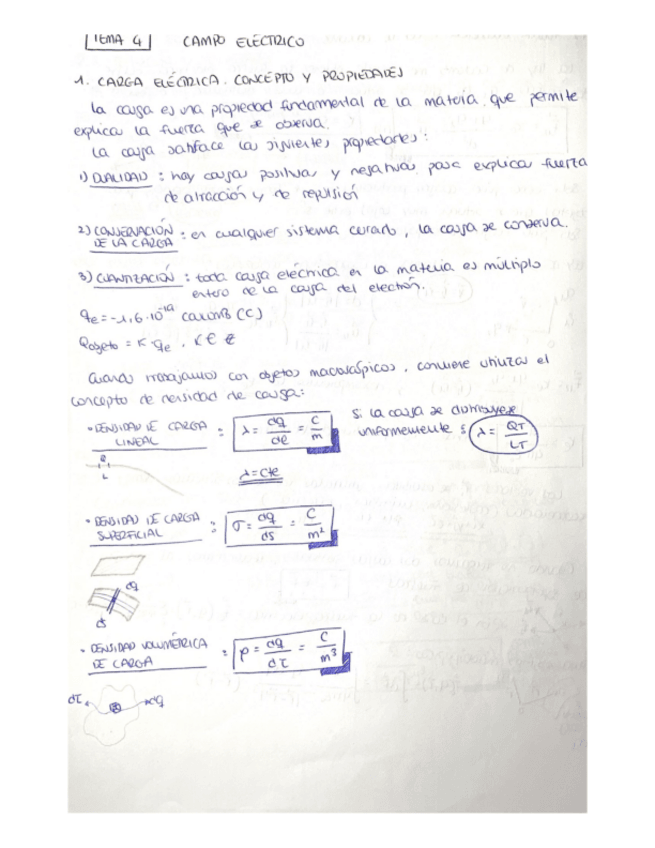 TEMA 4 CAMPO ELÉCTRICO
1. CARGA ELÉCTRICA. CONCEPTO Y PROPIEDADES
La carga es una propiedad fundamental de la materia que permite
explicar la fuerza que se observa.
La carga satisface las siguientes propiedades:
1) DUALIDAD : hay cargas positivas y negativas para explicar fuerza
de atracción y de repulsión
2) CONSERVACIÓN
DE LA CARGA : en cualquier sistema cerrado, la carga se conserva.
3) CUANTIZACIÓN : toda carga eléctrica en la materia es múltiplo
entero de la carga del electrón.
qe = -1,6·10⁻¹⁹ coulomb (C)
Qobjeto = K·qe , K ∈ ℤ
Cuando trabajamos con objetos macroscópicos, conviene utilizar el
concepto de densidad de carga:
• DENSIDAD DE CARGA
LINEAL : λ = dq/dl = C/m si la carga se distribuye
uniformemente λ = QT/LT
λ = cte
L
• DENSIDAD DE CARGA
SUPERFICIAL : σ = dq/ds = C/m²
dq
ds
• DENSIDAD VOLUMÉTRICA
DE CARGA : ρ = dq/dτ = C/m³
dτ dq